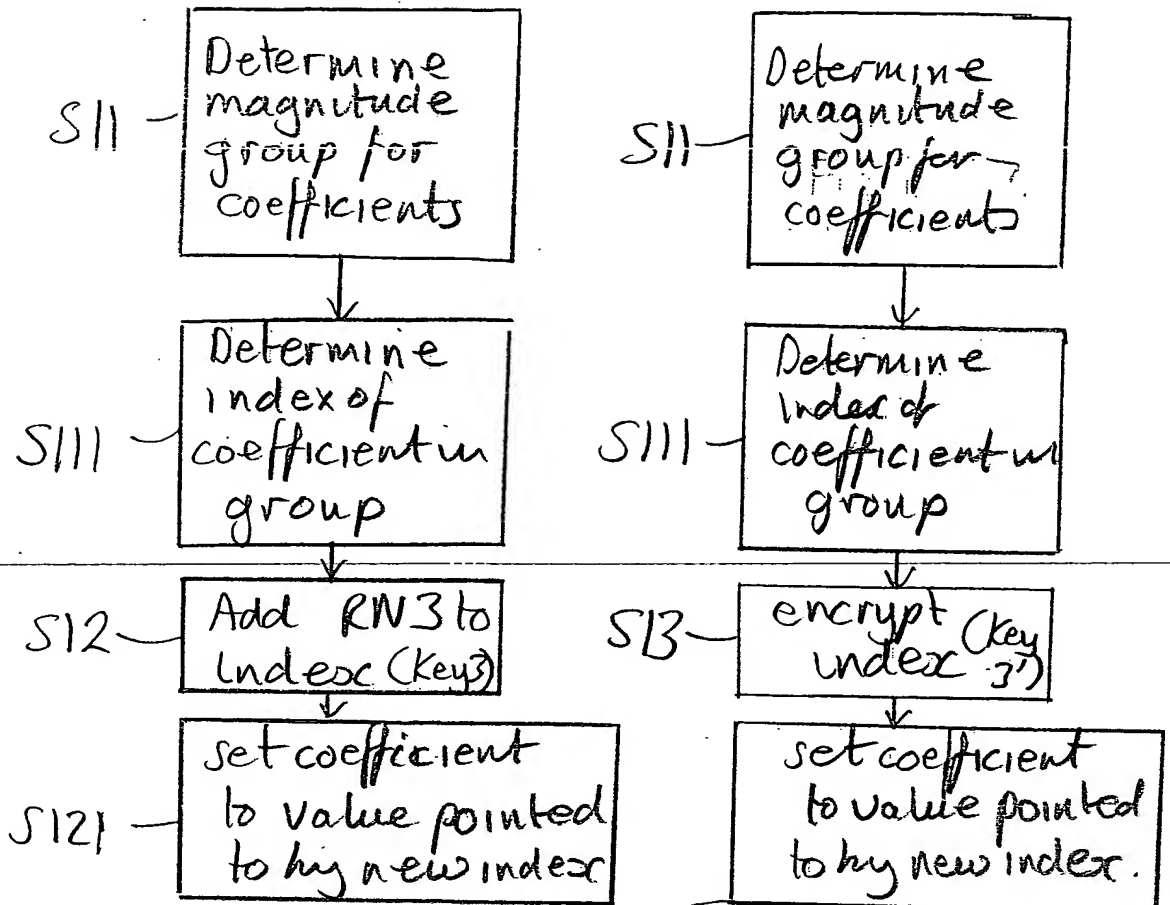 S11
Determine
magnitude
group for
coefficients
S111
Determine
index of
coefficient in
group
S12
Add RN3 to
index (Key3)
S121
set coefficient
to value pointed
to by new index
S11
Determine
magnitude
group for
coefficients
S111
Determine
index of
coefficient in
group
S13
encrypt (Key
index 3')
set coefficient
to value pointed
to by new index.